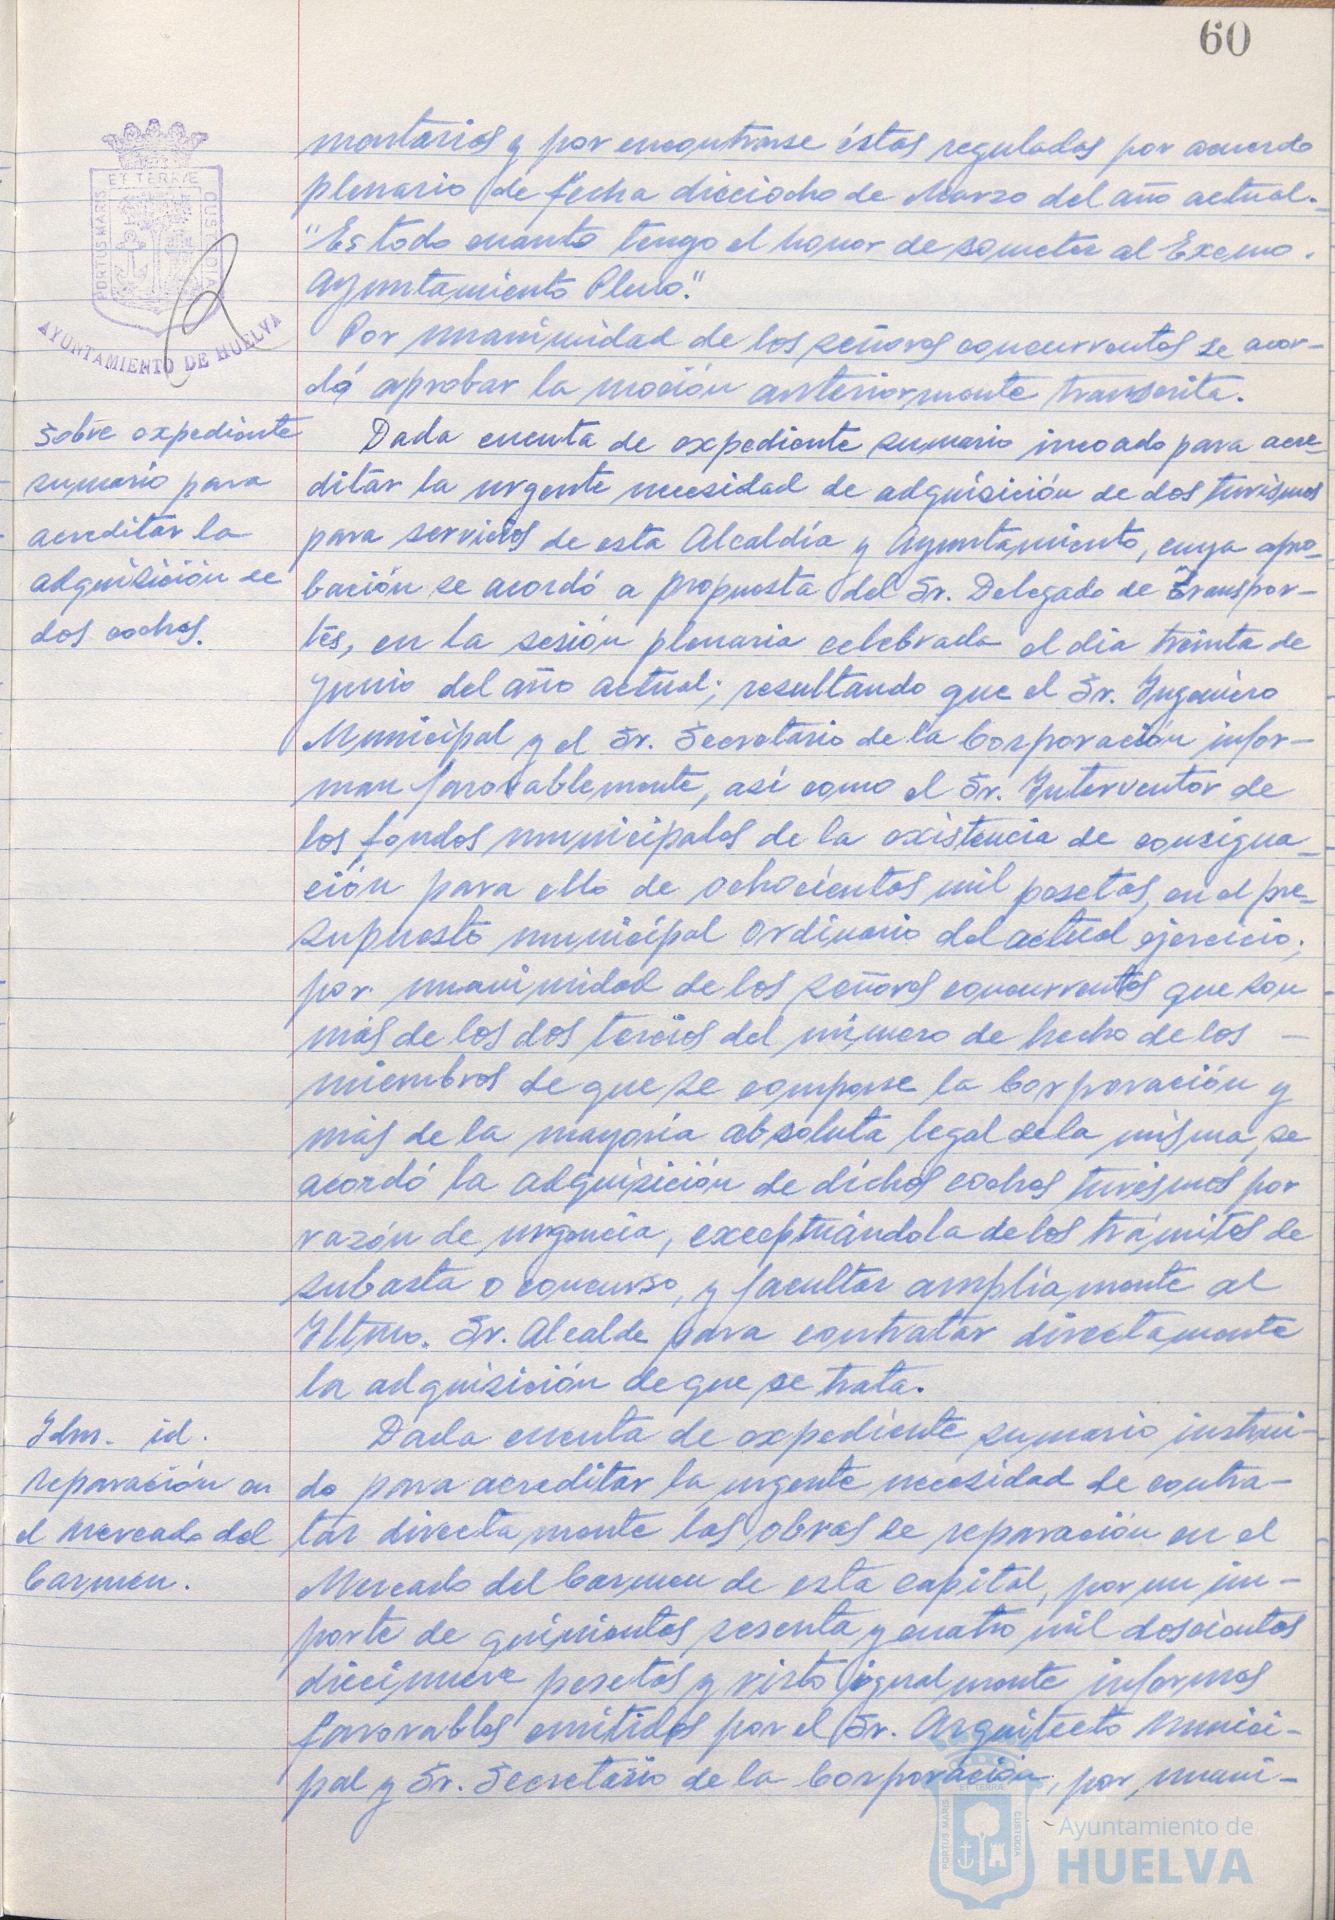 60
PORTUS MARIS
ET TERRÆ
CUSTODIA
AYUNTAMIENTO DE HUELVA
mentarios y por encontrarse éstas reguladas por acuerdo
plenario de fecha dieciocho de Marzo del año actual.-
"Es todo cuanto tengo el honor de someter al Excmo.
Ayuntamiento Pleno."
Por unanimidad de los señores concurrentes se acor-
dó aprobar la moción anteriormente transcrita.
Sobre expediente
sumario para
acreditar la
adquisición de
dos coches.
Dada cuenta de expediente sumario incoado para acre-
ditar la urgente necesidad de adquisición de dos turismos
para servicios de esta Alcaldía y Ayuntamiento, cuya apro-
bación se acordó a propuesta del Sr. Delegado de Transpor-
tes, en la sesión plenaria celebrada el dia treinta de
Junio del año actual; resultando que el Sr. Ingeniero
Municipal y el Sr. Secretario de la Corporación infor-
man favorablemente, así como el Sr. Interventor de
los fondos municipales de la existencia de consigna-
ción para ello de ochocientas mil pesetas, en el pre-
supuesto municipal Ordinario del actual ejercicio;
por unanimidad de los señores concurrentes que son
más de los dos tercios del número de hecho de los -
miembros de que se compone la Corporación y
más de la mayoría absoluta legal de la misma, se
acordó la adquisición de dichos coches turismos por
razón de urgencia, exceptuándola de los trámites de
subasta o concurso, y facultar ampliamente al
Iltmo. Sr. Alcalde para contratar directamente
la adquisición de que se trata.
Idm. id.
reparación en
el Mercado del
Carmen.
Dada cuenta de expediente sumario instrui-
do para acreditar la urgente necesidad de contra-
tar directamente las obras de reparación en el
Mercado del Carmen de esta capital, por un im-
porte de quinientas sesenta y cuatro mil doscientas
diecinueve pesetas y visto igualmente informes
favorables emitidos por el Sr. Arquitecto Munici-
pal y Sr. Secretario de la Corporación, por unani-
PORTUS MARIS
ET TERRÆ
CUSTODIA
Ayuntamiento de
HUELVA